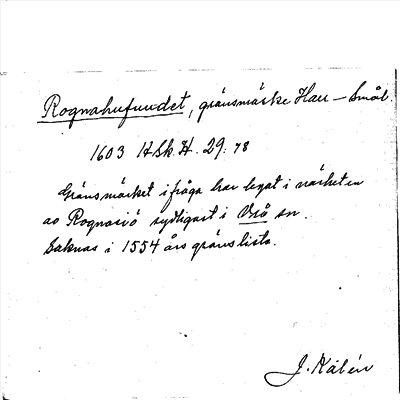 Rognahufundet, gränsmärke Hall – Smål.
1603 H Sk. H. 29. 78
Gränsmärket ifråga har legat i närheten
av Rognasjö sydligast i Ås sn.
Saknas i 1554 års gränslista.
J. Kalén